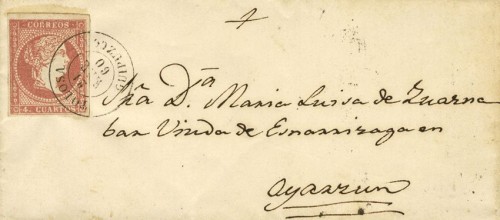 CORREOS
4. CUARTOS
TOLOSA
GUIPUZCOA
60
Sra. Dña Maria Luisa de Zuarna
bar Viuda de Esnarrizaga en
Oyarzun